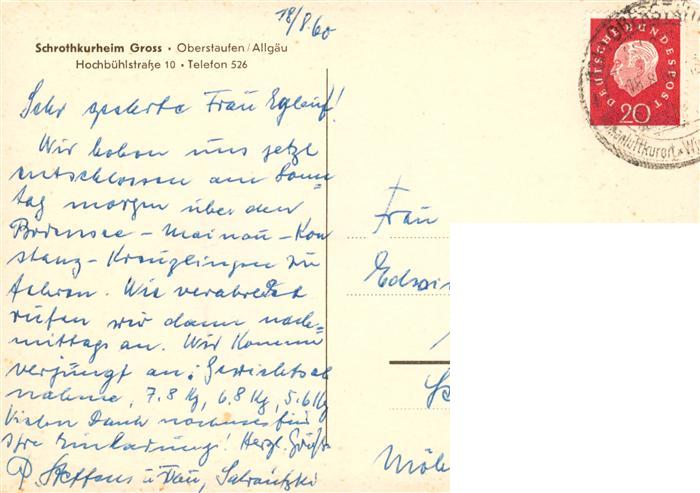 18/8.60
Schrothkurheim Gross • Oberstaufen/Allgäu
Hochbühlstraße 10 • Telefon 526
Sehr geehrte Frau
Wir haben uns jetzt
entschlossen am Sonn=
tag morgen über den
Bodensee - Mainau - Kon
stanz - Kreuzlingen zu
fahren. Wie verabredet
rufen wir dann nach=
mittags an. Wir kommen
verjüngt an: Gewichtsab
nahme, 7.8 Kg, 6.8 Kg, 5.6 Kg
Vielen Dank nochmals für
Ihre Einladung! Herzl. Grüße
Steffens u. Frau,
DEUTSCHE BUNDESPOST
20
Frau